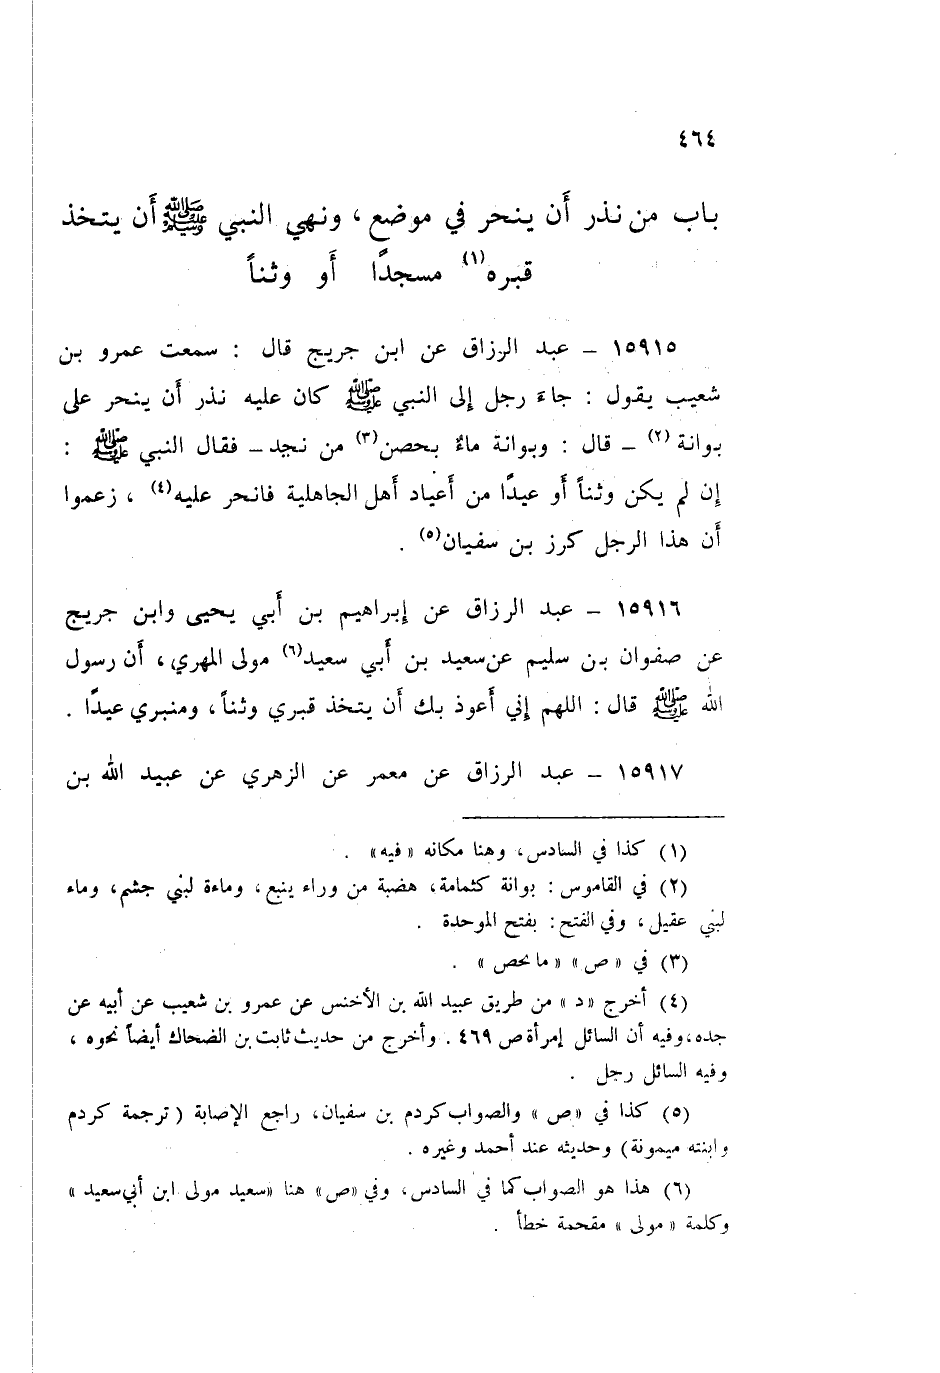 ٤٦٤
باب من نذر أن ينحر في موضع ، ونهي النبي ﷺ أن يتخذ
قبره(١) مسجدًا أو وثناً
١٥٩١٥ – عبد الرزاق عن ابن جريج قال : سمعت عمرو بن
شعيب يقول : جاء رجل إلى النبي ﷺ كان عليه نذر أن ينحر على
بوانة (٢) – قال : وبوانة ماءٌ بحصن(٣) من نجد – فقال النبي ﷺ :
إن لم يكن وثناً أو عيدًا من أعياد أهل الجاهلية فانحر عليه(٤) ، زعموا
أن هذا الرجل كرز بن سفيان(٥) .
١٥٩١٦ – عبد الرزاق عن إبراهيم بن أبي يحيى وابن جريج
عن صفوان بن سليم عن سعيد بن أبي سعيد(٦) مولى المهري ، أن رسول
الله ﷺ قال : اللهم إني أعوذ بك أن يتخذ قبري وثناً ، ومنبري عيدًا .
١٥٩١٧ – عبد الرزاق عن معمر عن الزهري عن عبيد الله بن
(١) كذا في السادس ، وهنا مكانه « فيه » .
(٢) في القاموس : بوانة كثمامة ، هضبة من وراء ينبع ، وماءة لبني جشم ، وماء
لبني عقيل ، وفي الفتح : بفتح الموحدة .
(٣) في « ص » « ما بحص » .
(٤) أخرج « د » من طريق عبيد الله بن الأخنس عن عمرو بن شعيب عن أبيه عن
جده ، وفيه أن السائل إمرأة ص ٤٦٩ . وأخرج من حديث ثابت بن الضحاك أيضاً نحوه ،
وفيه السائل رجل .
(٥) كذا في « ص » والصواب كردم بن سفيان ، راجع الإصابة ( ترجمة كردم
وابنته ميمونة ) وحديثه عند أحمد وغيره .
(٦) هذا هو الصواب كما في السادس ، وفي « ص » هنا « سعيد مولى ابن أبي سعيد »
وكلمة « مولى » مقحمة خطأ .